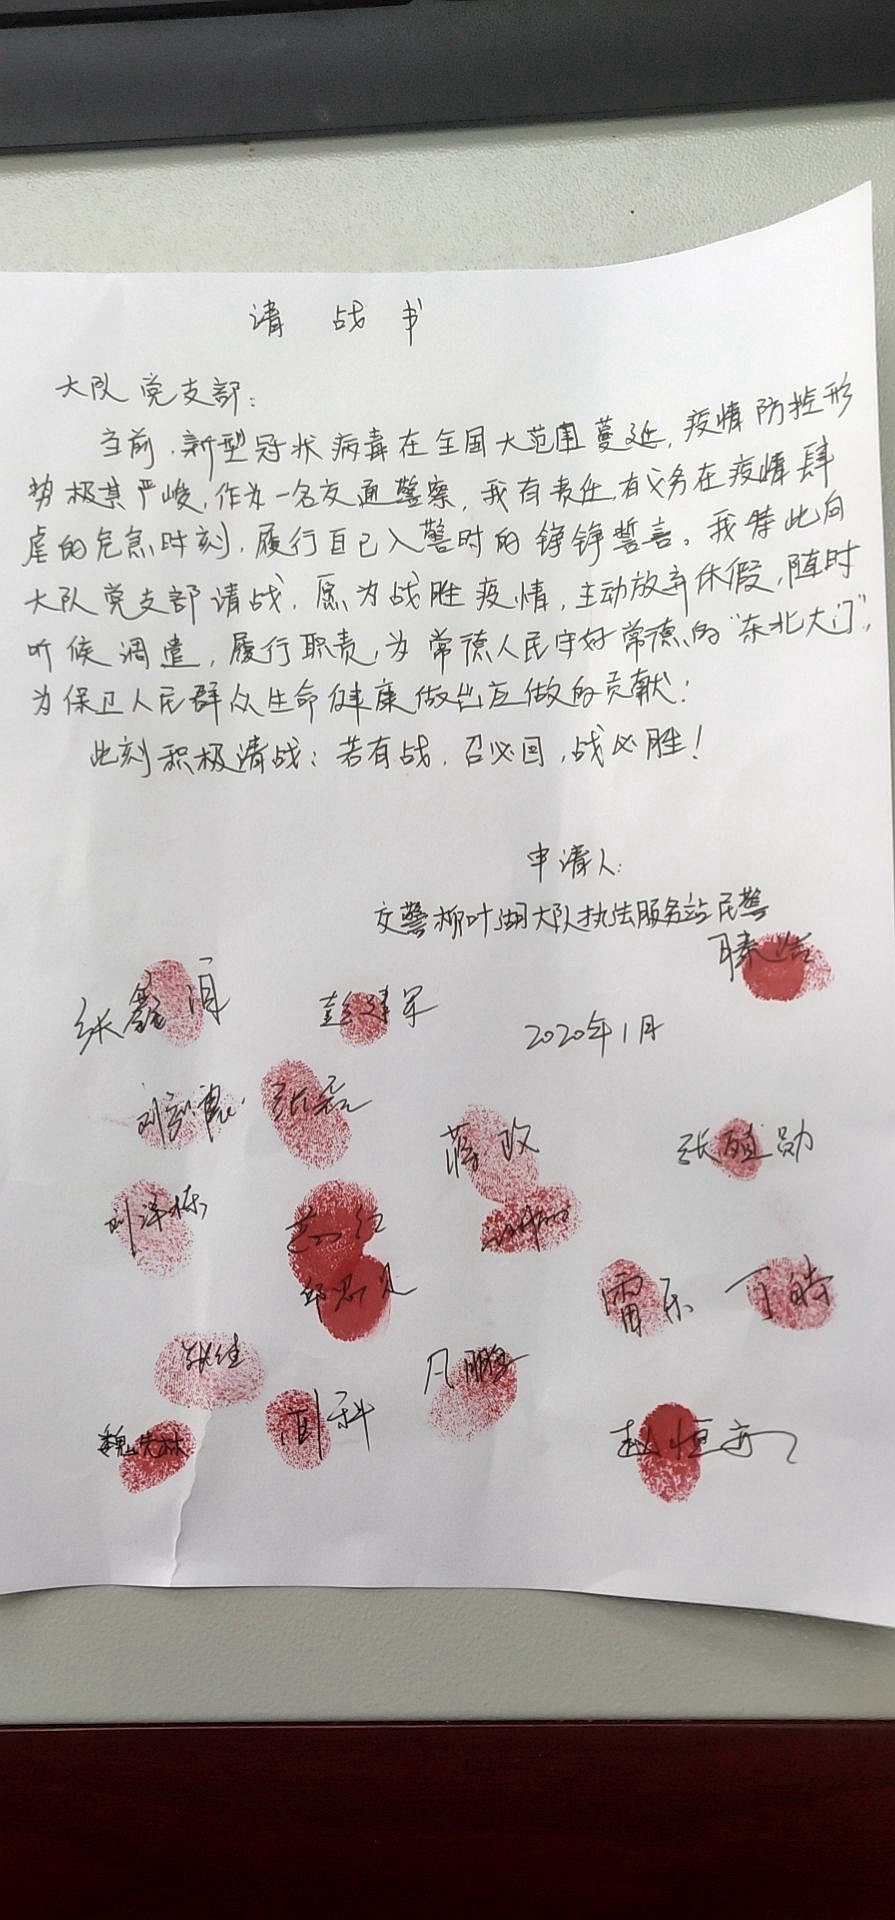 请战书
大队党支部:
当前,新型冠状病毒在全国大范围蔓延,疫情防控形
势极其严峻,作为一名交通警察,我有责任,有义务在疫情肆
虐的危急时刻,履行自己入警时的铮铮誓言。我特此向
大队党支部请战,愿为战胜疫情,主动放弃休假,随时
听候调遣,履行职责,为常德人民守好常德的“东北大门”,
为保卫人民群众生命健康做出应做的贡献!
此刻积极请战:若有战,召必回,战必胜!
申请人:
交警柳叶湖大队执法服务站民警
2020年1月
彭建军
张磊
蒋政
张殖勋
刘泽栋
雷乐
丁皓
张佳
周科
凡鹏
魏先林